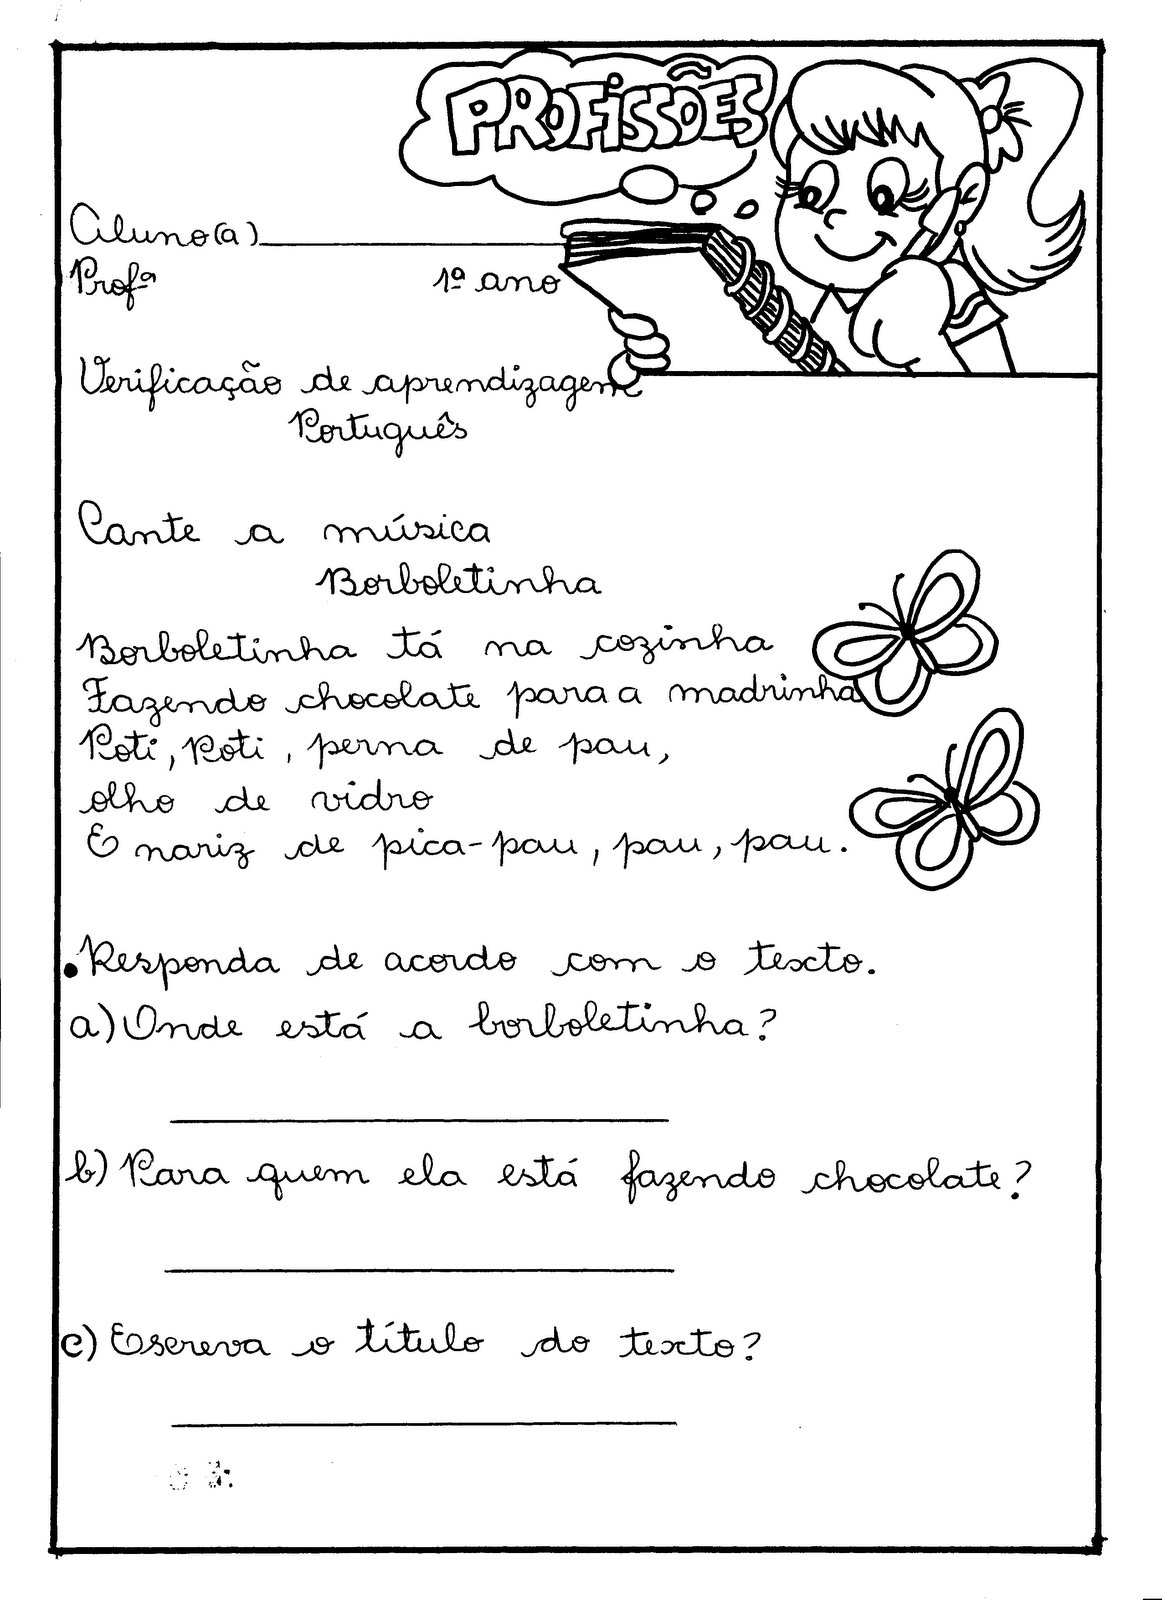 PROFISSÕES
Aluno(a)
Profª 1º ano
Verificação de aprendizagem
Português
Cante a música
Borboletinha
Borboletinha tá na cozinha
Fazendo chocolate para a madrinha
Poti, Poti, perna de pau,
olho de vidro
E nariz de pica-pau, pau, pau.
•Responda de acordo com o texto.
a) Onde está a borboletinha?
b) Para quem ela está fazendo chocolate?
c) Escreva o título do texto?